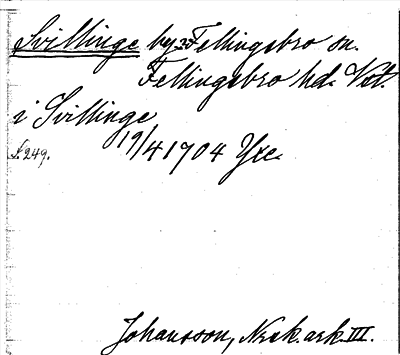 Svillinge by Fellingsbro sn.
Fellingsbro hd. Vstm.
i Svillinge
19/4 1704
f. 249.
Johansson, ark. III.